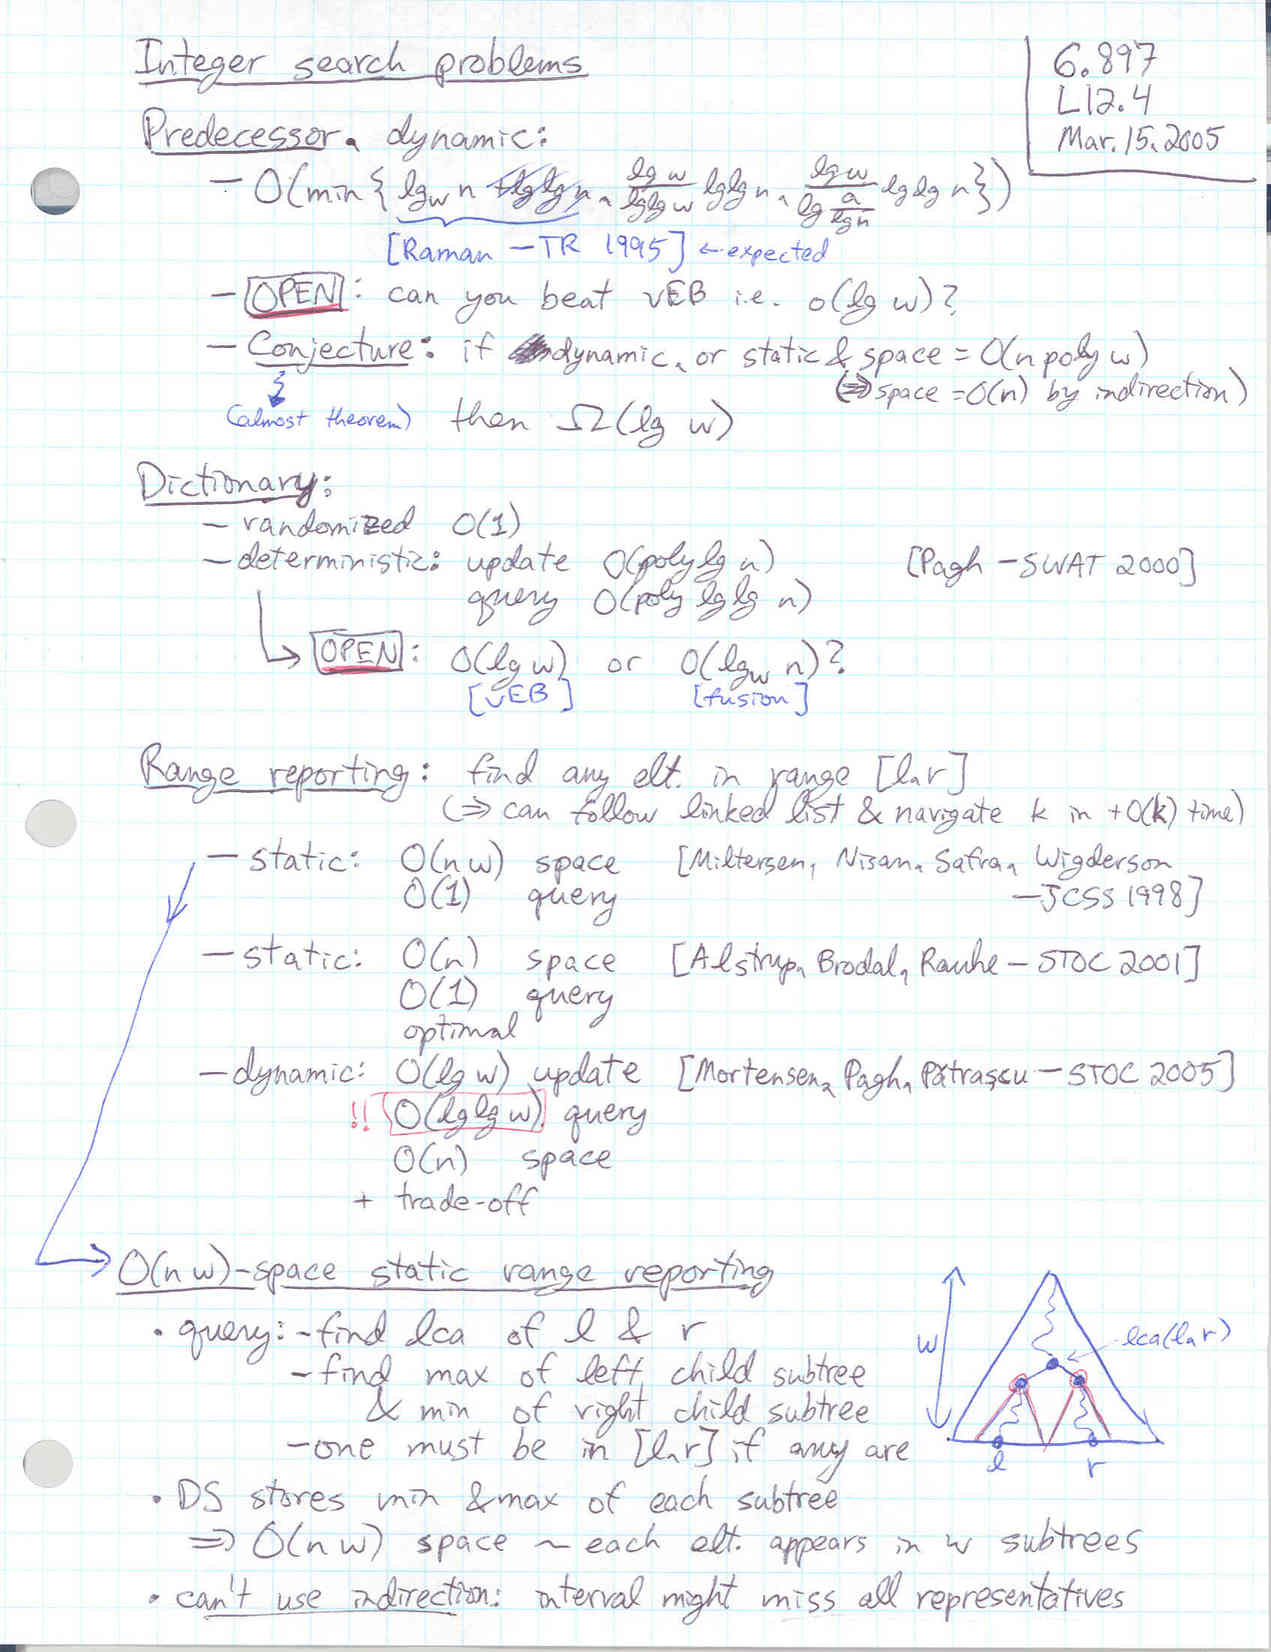 Integer search problems
6.897
L12.4
Mar. 15, 2005
Predecessor, dynamic:
- O(min{ lg_w n, lg w / lg lg w lg lg n, lg w / lg (a / lg n) lg lg n })
[Raman - TR 1995] ← expected
- OPEN: can you beat vEB i.e. o(lg w)?
- Conjecture: if dynamic, or static & space = O(n poly w)
(⇒ space = O(n) by indirection)
(almost theorem) then Ω(lg w)
Dictionary:
- randomized O(1)
- deterministic: update O(poly lg n) [Pagh - SWAT 2000]
query O(poly lg lg n)
→ OPEN: O(lg w) or O(lg_w n)?
[vEB] [fusion]
Range reporting: find any elt. in range [l,r]
(⇒ can follow linked list & navigate k in +O(k) time)
- static: O(n w) space [Miltersen, Nisan, Safra, Wigderson
O(1) query - JCSS 1998]
- static: O(n) space [Alstrup, Brodal, Rauhe - STOC 2001]
O(1) query
optimal
- dynamic: O(lg w) update [Mortensen, Pagh, Pătraşcu - STOC 2005]
!! O(lg lg w) query
O(n) space
+ trade-off
→ O(n w)-space static range reporting
• query: - find lca of l & r
- find max of left child subtree
& min of right child subtree
- one must be in [l,r] if any are
w
lca(l,r)
l r
• DS stores min & max of each subtree
⇒ O(n w) space ~ each elt. appears in w subtrees
• can't use indirection: interval might miss all representatives